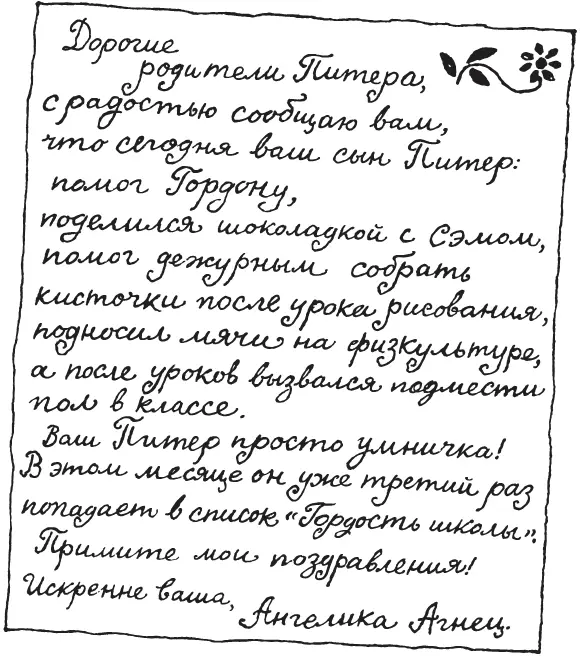 Дорогие
родители Питера,
с радостью сообщаю вам,
что сегодня ваш сын Питер:
помог Гордону,
поделился шоколадкой с Сэмом,
помог дежурным собрать
кисточки после урока рисования,
подносил мячи на физкультуре,
а после уроков вызвался подмести
пол в классе.
Ваш Питер просто умничка!
В этом месяце он уже третий раз
попадает в список «Гордость школы».
Примите мои поздравления!
Искренне ваша,
Ангелика Агнец.